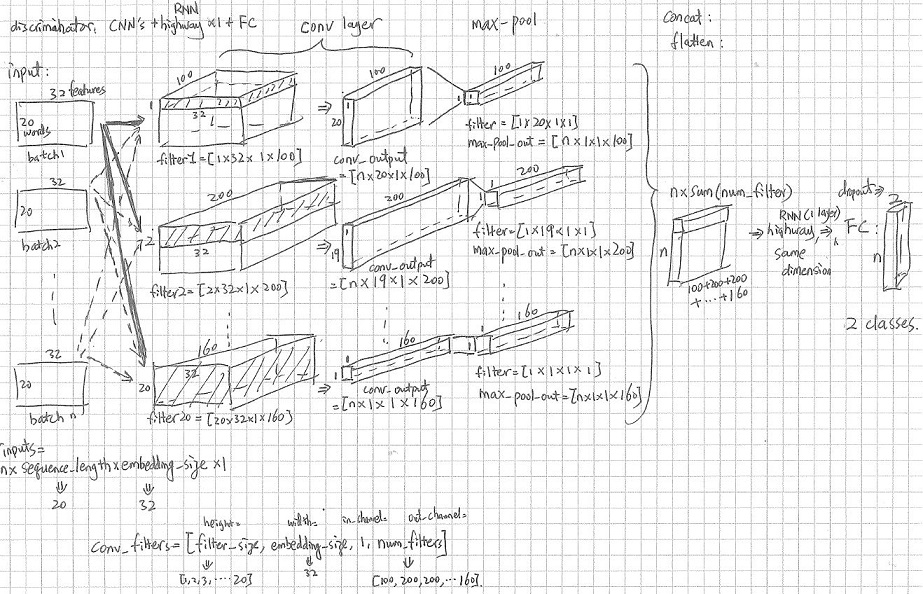 discriminator: CNN's + highway x1 + FC
RNN
conv layer
max-pool
concat:
flatten:
input:
32 features
20
words
batch1
32
20
batch2
32
20
batch n
100
1
32
1
filter1=[1x32x1x100]
⇒
100
1
20
conv_output
=[nx20x1x100]
100
1
1
filter=[1x20x1x1]
max-pool_out=[nx1x1x100]
200
2
32
filter2=[2x32x1x200]
⇒
200
1
19
conv_output
=[nx19x1x200]
200
1
filter=[1x19x1x1]
max-pool_out=[nx1x1x200]
160
32
20
filter20=[20x32x1x160]
⇒
160
1
1
conv_output
=[nx1x1x160]
160
1
filter=[1x1x1x1]
max-pool_out=[nx1x1x160]
nxsum(num_filter)
n
100+200+200
+...+160
⇒ RNN(1 layer)
highway,
same
dimension
⇒
dropout⇒
FC:
2
n
2 classes.
inputs=
nx sequence_length x embedding_size x1
⇓ ⇓
20 32
height= width= in_channel= out_channel=
conv_filters=[filter_size, embedding_size, 1, num_filters]
⇓ ⇓ ⇓
[1,2,3,....20] 32 [100,200,200,...160]